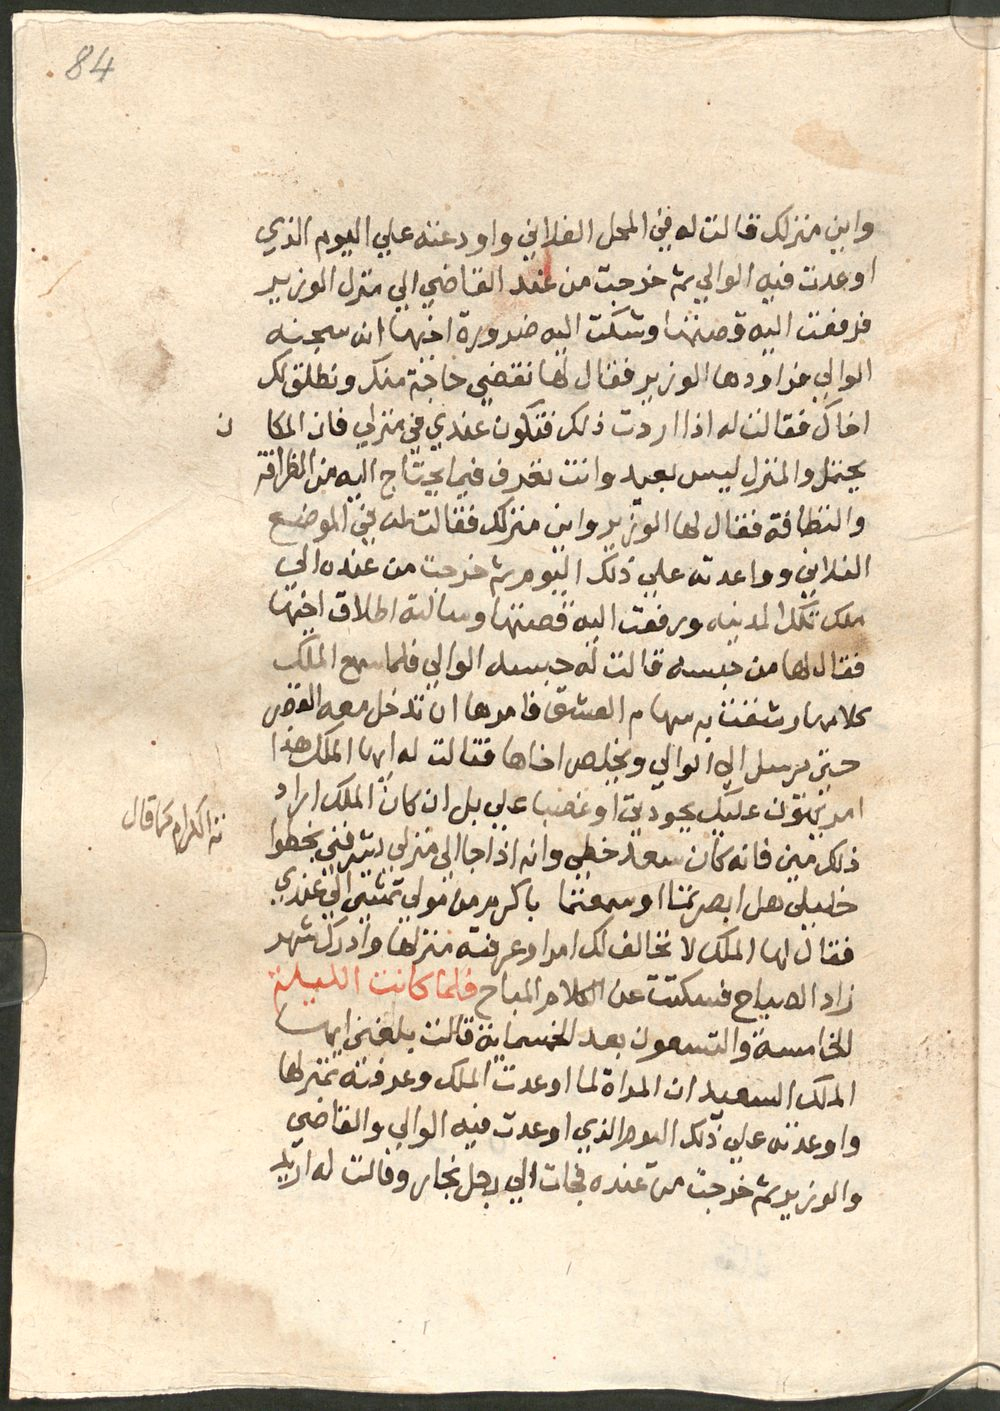 84
واين منزلك قالت له في المحل الفلاني واودعته علي اليوم الذي
اوعدت فيه الوالي ثم خرجت من عند القاضي الي منزل الوزير
فرفعت اليه قصتها وشكت اليه ضرورة اخيها انه سجنه
الوالي فراودها الوزير فقال لها نقضي حاجة منك ونطلق لك
اخاك فقالت له اذا اردت ذلك فتكون عندي في منزلي فان المكا ن
والمنزل ليس بعيد وانت تعرف فيما يحتاج اليه من الظرافة
والنظافة فقال لها الوزير واين منزلك فقالت له في الموضع
الفلاني وواعدته علي ذلك اليوم ثم خرجت من عنده الي
ملك تلك المدينه ورفعت اليه قصتها وسالته اطلاق اخيها
فقال لها من حبسه قالت له حبسه الوالي فلما سمع الملك
كلامها رشقته بسهام العشق فامرها ان تدخل معه القصر
حتي يرسل الي الوالي ويخلص اخاها فقالت له ايها الملك هذا
امر يهون عليك بل ان كان الملك اراد
ذلك مني فانه كان سعد حظي وانه اذا جا الي منزلي يشرفني بخطوا
ته الكرام كما قال
خليلي هل ابصرتما او سمعتما باكرم من مولي تمشي الي عندي
فقال لها الملك لا نخالف لك امرا وعرفته منزلها وادرك شهر
زاد الصباح فسكتت عن الكلام المباح فلما كانت الليلة
الخامسة والتسعون بعد الخمسماية قالت بلغني ايها
الملك السعيد ان المراة لما اوعدت الملك وعرفته بمنزلها
واوعدته علي ذلك اليوم الذي اوعدت فيه الوالي والقاضي
والوزير ثم خرجت من عنده فجات الي رجل نجار وقالت له اريد